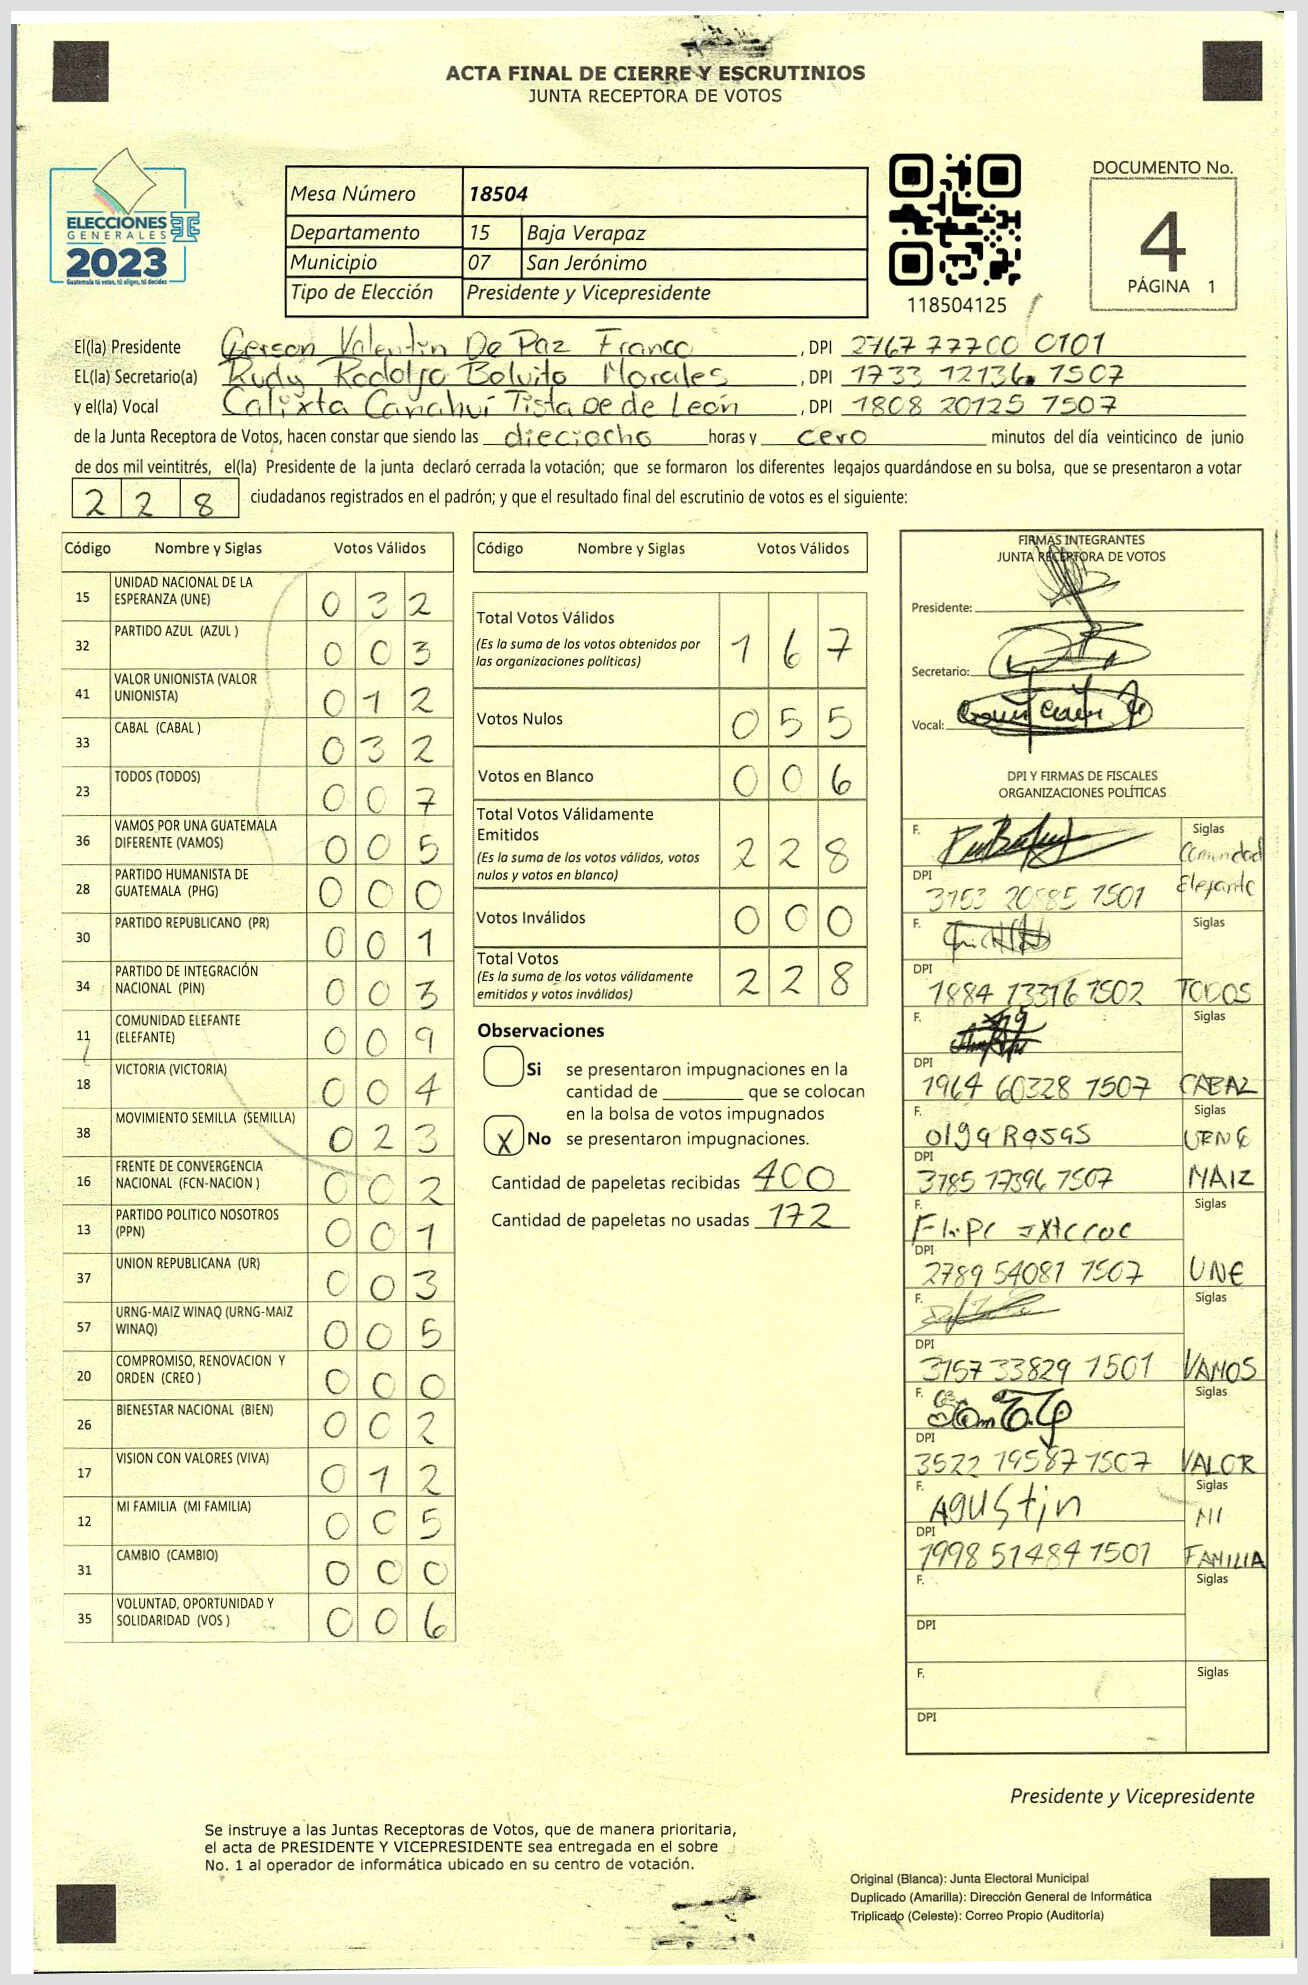 ACTA FINAL DE CIERRE Y ESCRUTINIOS
JUNTA RECEPTORA DE VOTOS
ELECCIONES
GENERALES
2023
Guatemala tú votas, tú eliges, tú decides
Mesa Número 18504
Departamento 15 Baja Verapaz
Municipio 07 San Jerónimo
Tipo de Elección Presidente y Vicepresidente
118504125
DOCUMENTO No.
4
PÁGINA 1
El(la) Presidente Gerson Valentin De Paz Franco , DPI 2767 77700 0101
EL(la) Secretario(a) Rudy Rodolfo Bolvito Morales , DPI 1733 12136 1507
y el(la) Vocal Calixta Canahuí Tista de de León , DPI 1808 20125 1507
de la Junta Receptora de Votos, hacen constar que siendo las dieciocho horas y cero minutos del día veinticinco de junio
de dos mil veintitrés, el(la) Presidente de la junta declaró cerrada la votación; que se formaron los diferentes legajos quardándose en su bolsa, que se presentaron a votar
228 ciudadanos registrados en el padrón; y que el resultado final del escrutinio de votos es el siguiente:
Código Nombre y Siglas Votos Válidos
15 UNIDAD NACIONAL DE LA ESPERANZA (UNE) 032
32 PARTIDO AZUL (AZUL ) 003
41 VALOR UNIONISTA (VALOR UNIONISTA) 012
33 CABAL (CABAL ) 032
23 TODOS (TODOS) 007
36 VAMOS POR UNA GUATEMALA DIFERENTE (VAMOS) 005
28 PARTIDO HUMANISTA DE GUATEMALA (PHG) 000
30 PARTIDO REPUBLICANO (PR) 001
34 PARTIDO DE INTEGRACIÓN NACIONAL (PIN) 003
11 COMUNIDAD ELEFANTE (ELEFANTE) 009
18 VICTORIA (VICTORIA) 004
38 MOVIMIENTO SEMILLA (SEMILLA) 023
16 FRENTE DE CONVERGENCIA NACIONAL (FCN-NACION ) 002
13 PARTIDO POLITICO NOSOTROS (PPN) 001
37 UNION REPUBLICANA (UR) 003
57 URNG-MAIZ WINAQ (URNG-MAIZ WINAQ) 005
20 COMPROMISO, RENOVACION Y ORDEN (CREO ) 000
26 BIENESTAR NACIONAL (BIEN) 002
17 VISION CON VALORES (VIVA) 012
12 MI FAMILIA (MI FAMILIA) 005
31 CAMBIO (CAMBIO) 000
35 VOLUNTAD, OPORTUNIDAD Y SOLIDARIDAD (VOS ) 006
Código Nombre y Siglas Votos Válidos
Total Votos Válidos 167
(Es la suma de los votos obtenidos por
las organizaciones políticas)
Votos Nulos 055
Votos en Blanco 006
Total Votos Válidamente
Emitidos 228
(Es la suma de los votos válidos, votos
nulos y votos en blanco)
Votos Inválidos 000
Total Votos 228
(Es la suma de los votos válidamente
emitidos y votos inválidos)
Observaciones
Si se presentaron impugnaciones en la
cantidad de ________ que se colocan
en la bolsa de votos impugnados
X No se presentaron impugnaciones.
Cantidad de papeletas recibidas 400
Cantidad de papeletas no usadas 172
FIRMAS INTEGRANTES
JUNTA RECEPTORA DE VOTOS
Presidente:
Secretario:
Vocal:
DPI Y FIRMAS DE FISCALES
ORGANIZACIONES POLÍTICAS
F. Siglas
Comunidad
Elefante
DPI 3153 20585 1501
F. Siglas
DPI 1884 13316 1502 TODOS
F. Siglas
DPI 1964 60328 1507 CABAL
F. Olga Rosas Siglas URNG
DPI 3185 17396 1507 MAIZ
F. Siglas
DPI 2789 54081 1507 UNE
F. Siglas
DPI 3157 33829 1501 VAMOS
F. Siglas
DPI 3522 19587 1507 VALOR
F. AGUStin Siglas MI
DPI 1998 51484 1501 FAMILIA
F. Siglas
DPI
F. Siglas
DPI
Presidente y Vicepresidente
Se instruye a las Juntas Receptoras de Votos, que de manera prioritaria,
el acta de PRESIDENTE Y VICEPRESIDENTE sea entregada en el sobre
No. 1 al operador de informática ubicado en su centro de votación.
Original (Blanca): Junta Electoral Municipal
Duplicado (Amarilla): Dirección General de Informática
Triplicado (Celeste): Correo Propio (Auditoría)